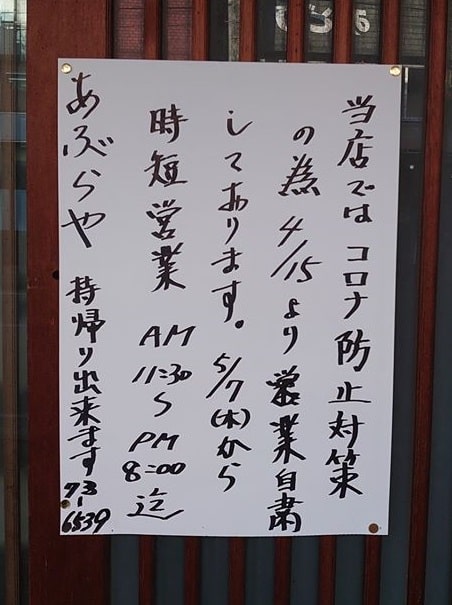 当店では コロナ防止対策
の為 4/15より 営業自粛
してあります。5/7(木)から
時短営業 AM 11:30 〜 PM 8:00 迄
あぶらや 持帰り出来ます 73-6539